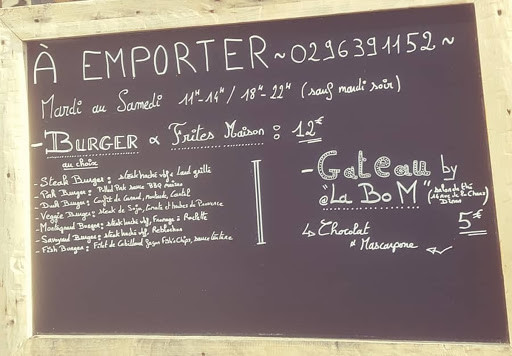 À EMPORTER ~ 0296391152 ~
Mardi au Samedi 11H-14H / 18H-22H (sauf mardi soir)
- BURGER & Frites Maison : 12€
au choix
- Steak Burger : steak haché vbf, Lard grillé
- Pork Burger : Pulled Pork sauce BBQ maison
- Duck Burger : Confit de Canard, moutarde, Cantal
- Veggie Burger : steak de Soja, Tomate et herbes de Provence
- Montagnard Burger : steak haché vbf, Fromage à Raclette
- Savoyard Burger : steak haché vbf, Reblochon
- Fish Burger : Filet de Cabillaud façon Fish'n Chips, sauce tartare
- Gateau by
@"La BoM" salon de thé
Dinan
5€
↳ Chocolat
& Mascarpone